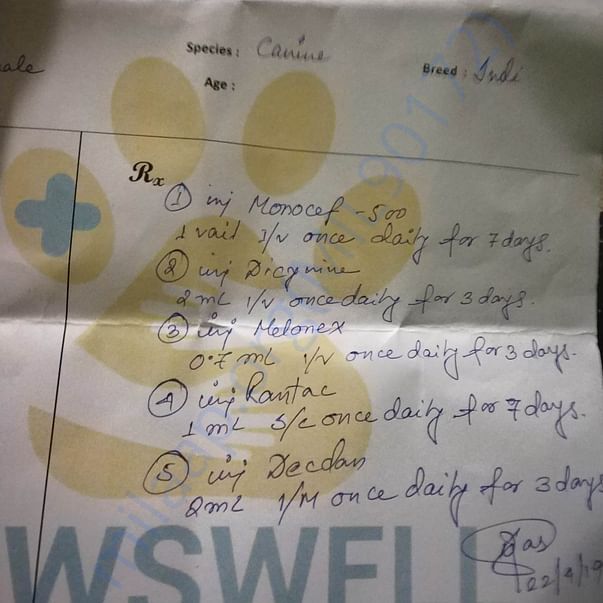 Species : Canine
ale
Breed : Indi
Age :
Rx
① inj Monocef -500
1 vail I/V once daily for 7 days.
② inj Dicynine
2 mL I/V once daily for 3 days.
③ inj Melonex
0.7 mL I/V once daily for 3 days.
④ inj Rantac
1 mL S/C once daily for 7 days.
⑤ inj Decdan
2 mL I/M once daily for 3 days
22/4/19
WSWELL